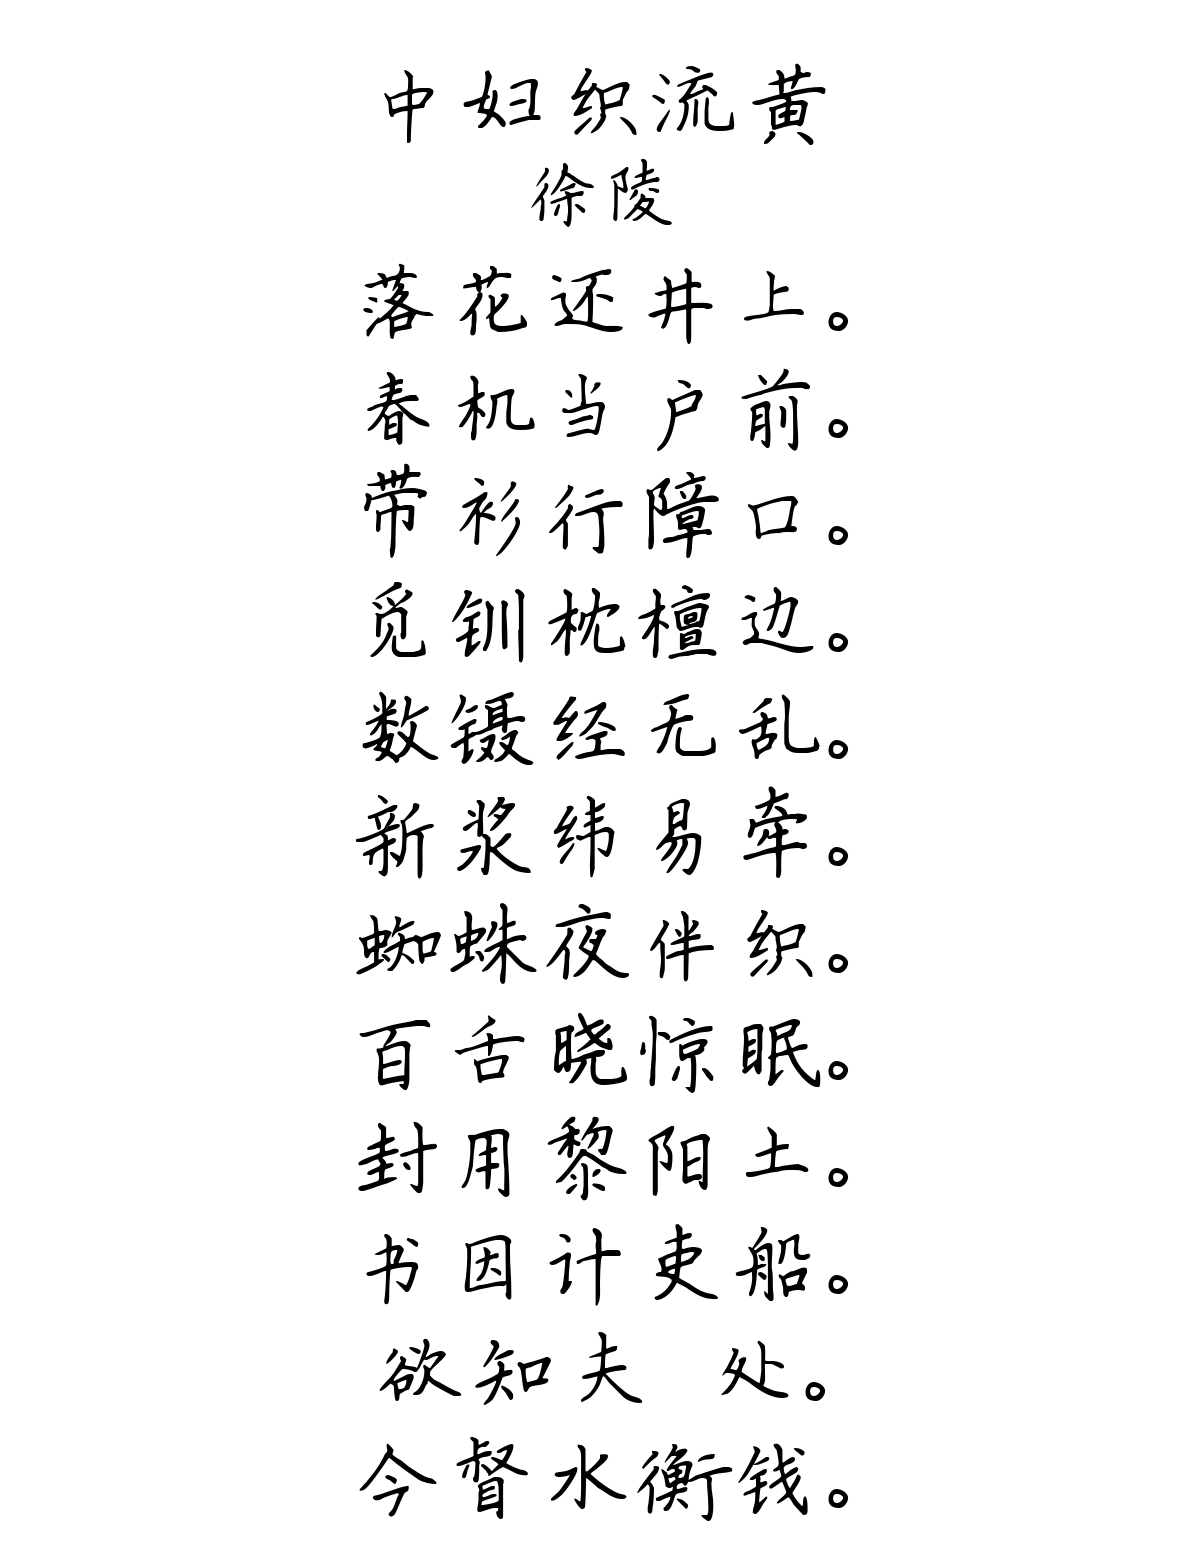 中妇织流黄
徐陵
落花还井上。
春机当户前。
带衫行障口。
觅钏枕檀边。
数镊经无乱。
新浆纬易牵。
蜘蛛夜伴织。
百舌晓惊眠。
封用黎阳土。
书因计吏船。
欲知夫 处。
今督水衡钱。